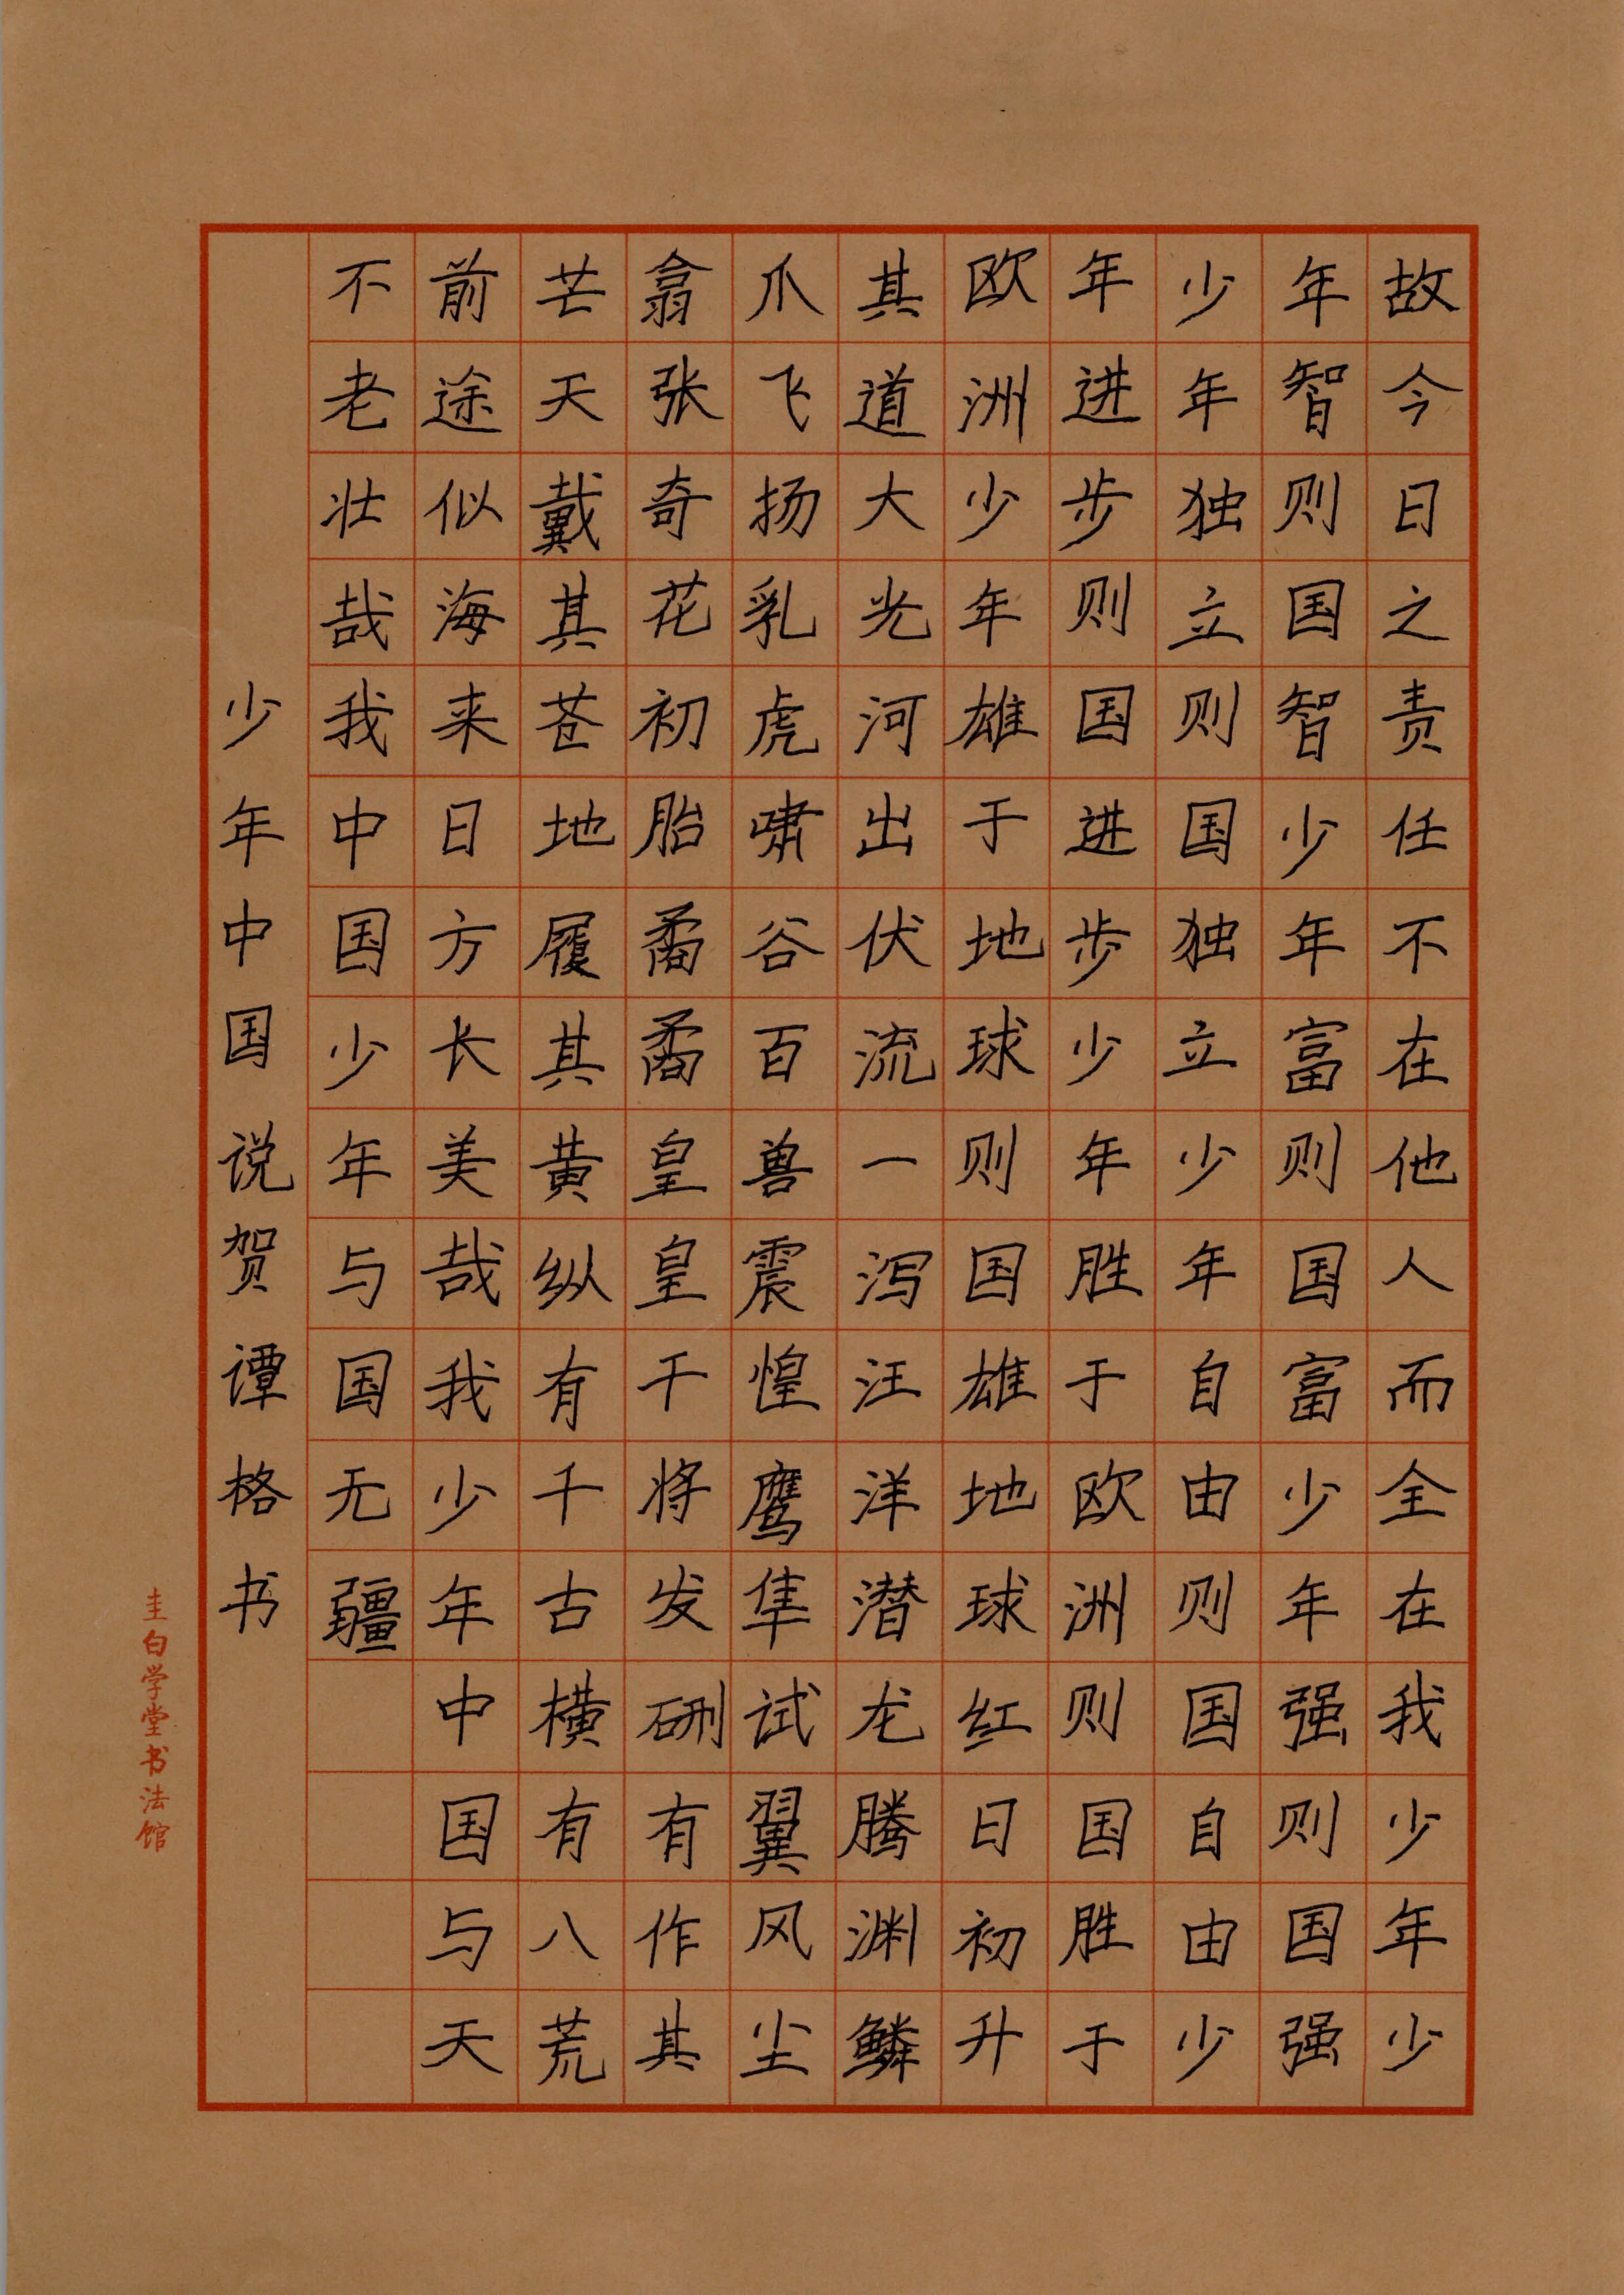 故今日之责任不在他人而全在我少年少
年智则国智少年富则国富少年强则国强
少年独立则国独立少年自由则国自由少
年进步则国进步少年胜于欧洲则国胜于
欧洲少年雄于地球则国雄地球红日初升
其道大光河出伏流一泻汪洋潜龙腾渊鳞
爪飞扬乳虎啸谷百兽震惶鹰隼试翼风尘
翕张奇花初胎矞矞皇皇干将发硎有作其
芒天戴其苍地履其黄纵有千古横有八荒
前途似海来日方长美哉我少年中国与天
不老壮哉我中国少年与国无疆
少年中国说贺谭格书
圭白学堂书法馆